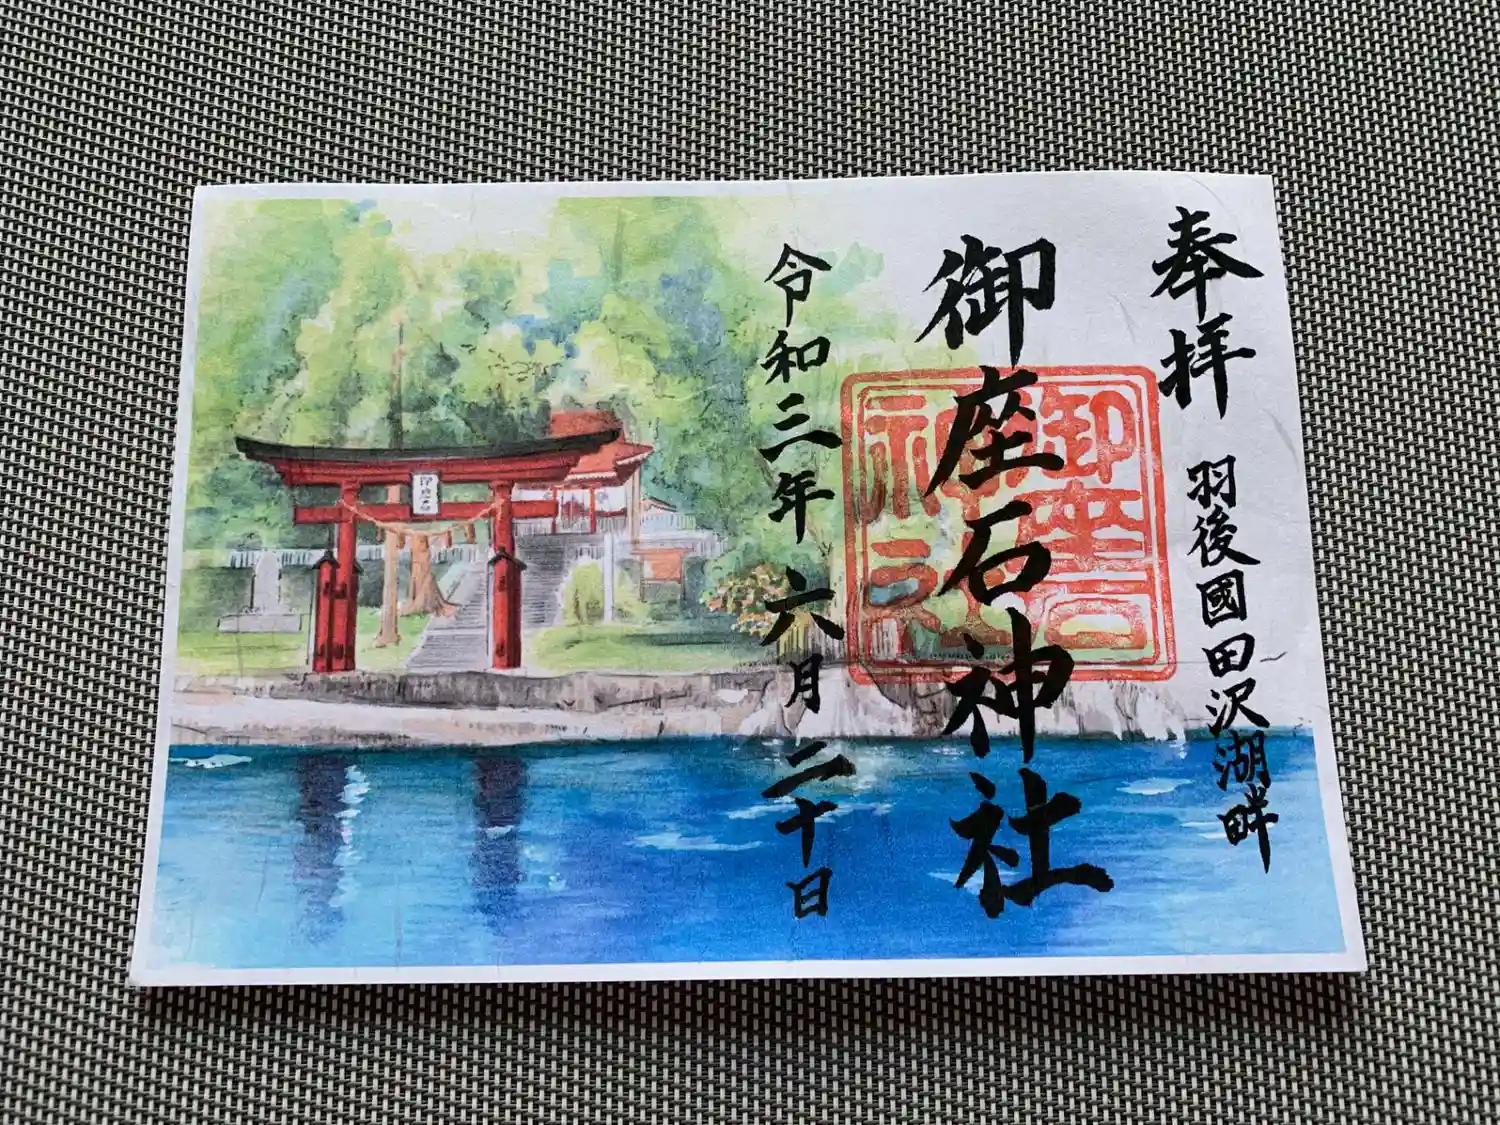 奉拝
羽後國田沢湖畔
御座石神社
御座石
神社
令和三年六月二十日
御座石